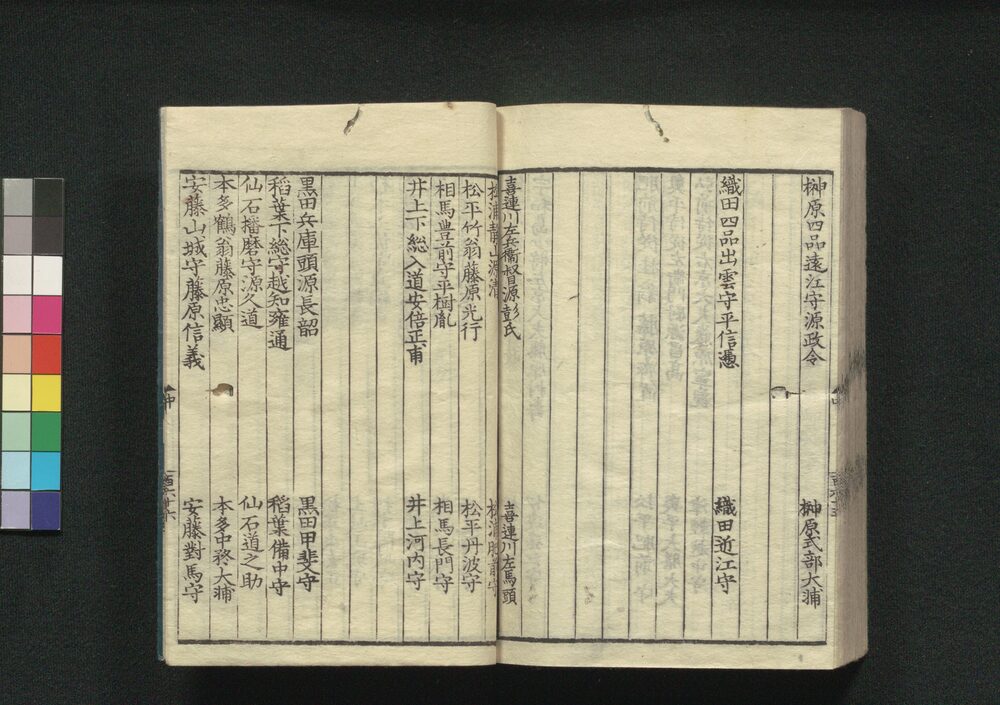 榊原四品遠江守源政令　榊原式部大輔
織田四品出雲守平信憑　織田近江守
喜連川左兵衞督源彭氏　喜連川左馬頭
松浦靜山源清　松浦肥前守
松平竹翁藤原光行　松平丹波守
相馬豊前守平樹胤　相馬長門守
井上下総入道安倍正甫　井上河内守
黒田兵庫頭源長韶　黒田甲斐守
稻葉下総守越知雍通　稻葉備中守
仙石播磨守源久道　仙石道之助
本多鶴翁藤原忠顯　本多中務大輔
安藤山城守藤原信義　安藤對馬守
中
百六十六